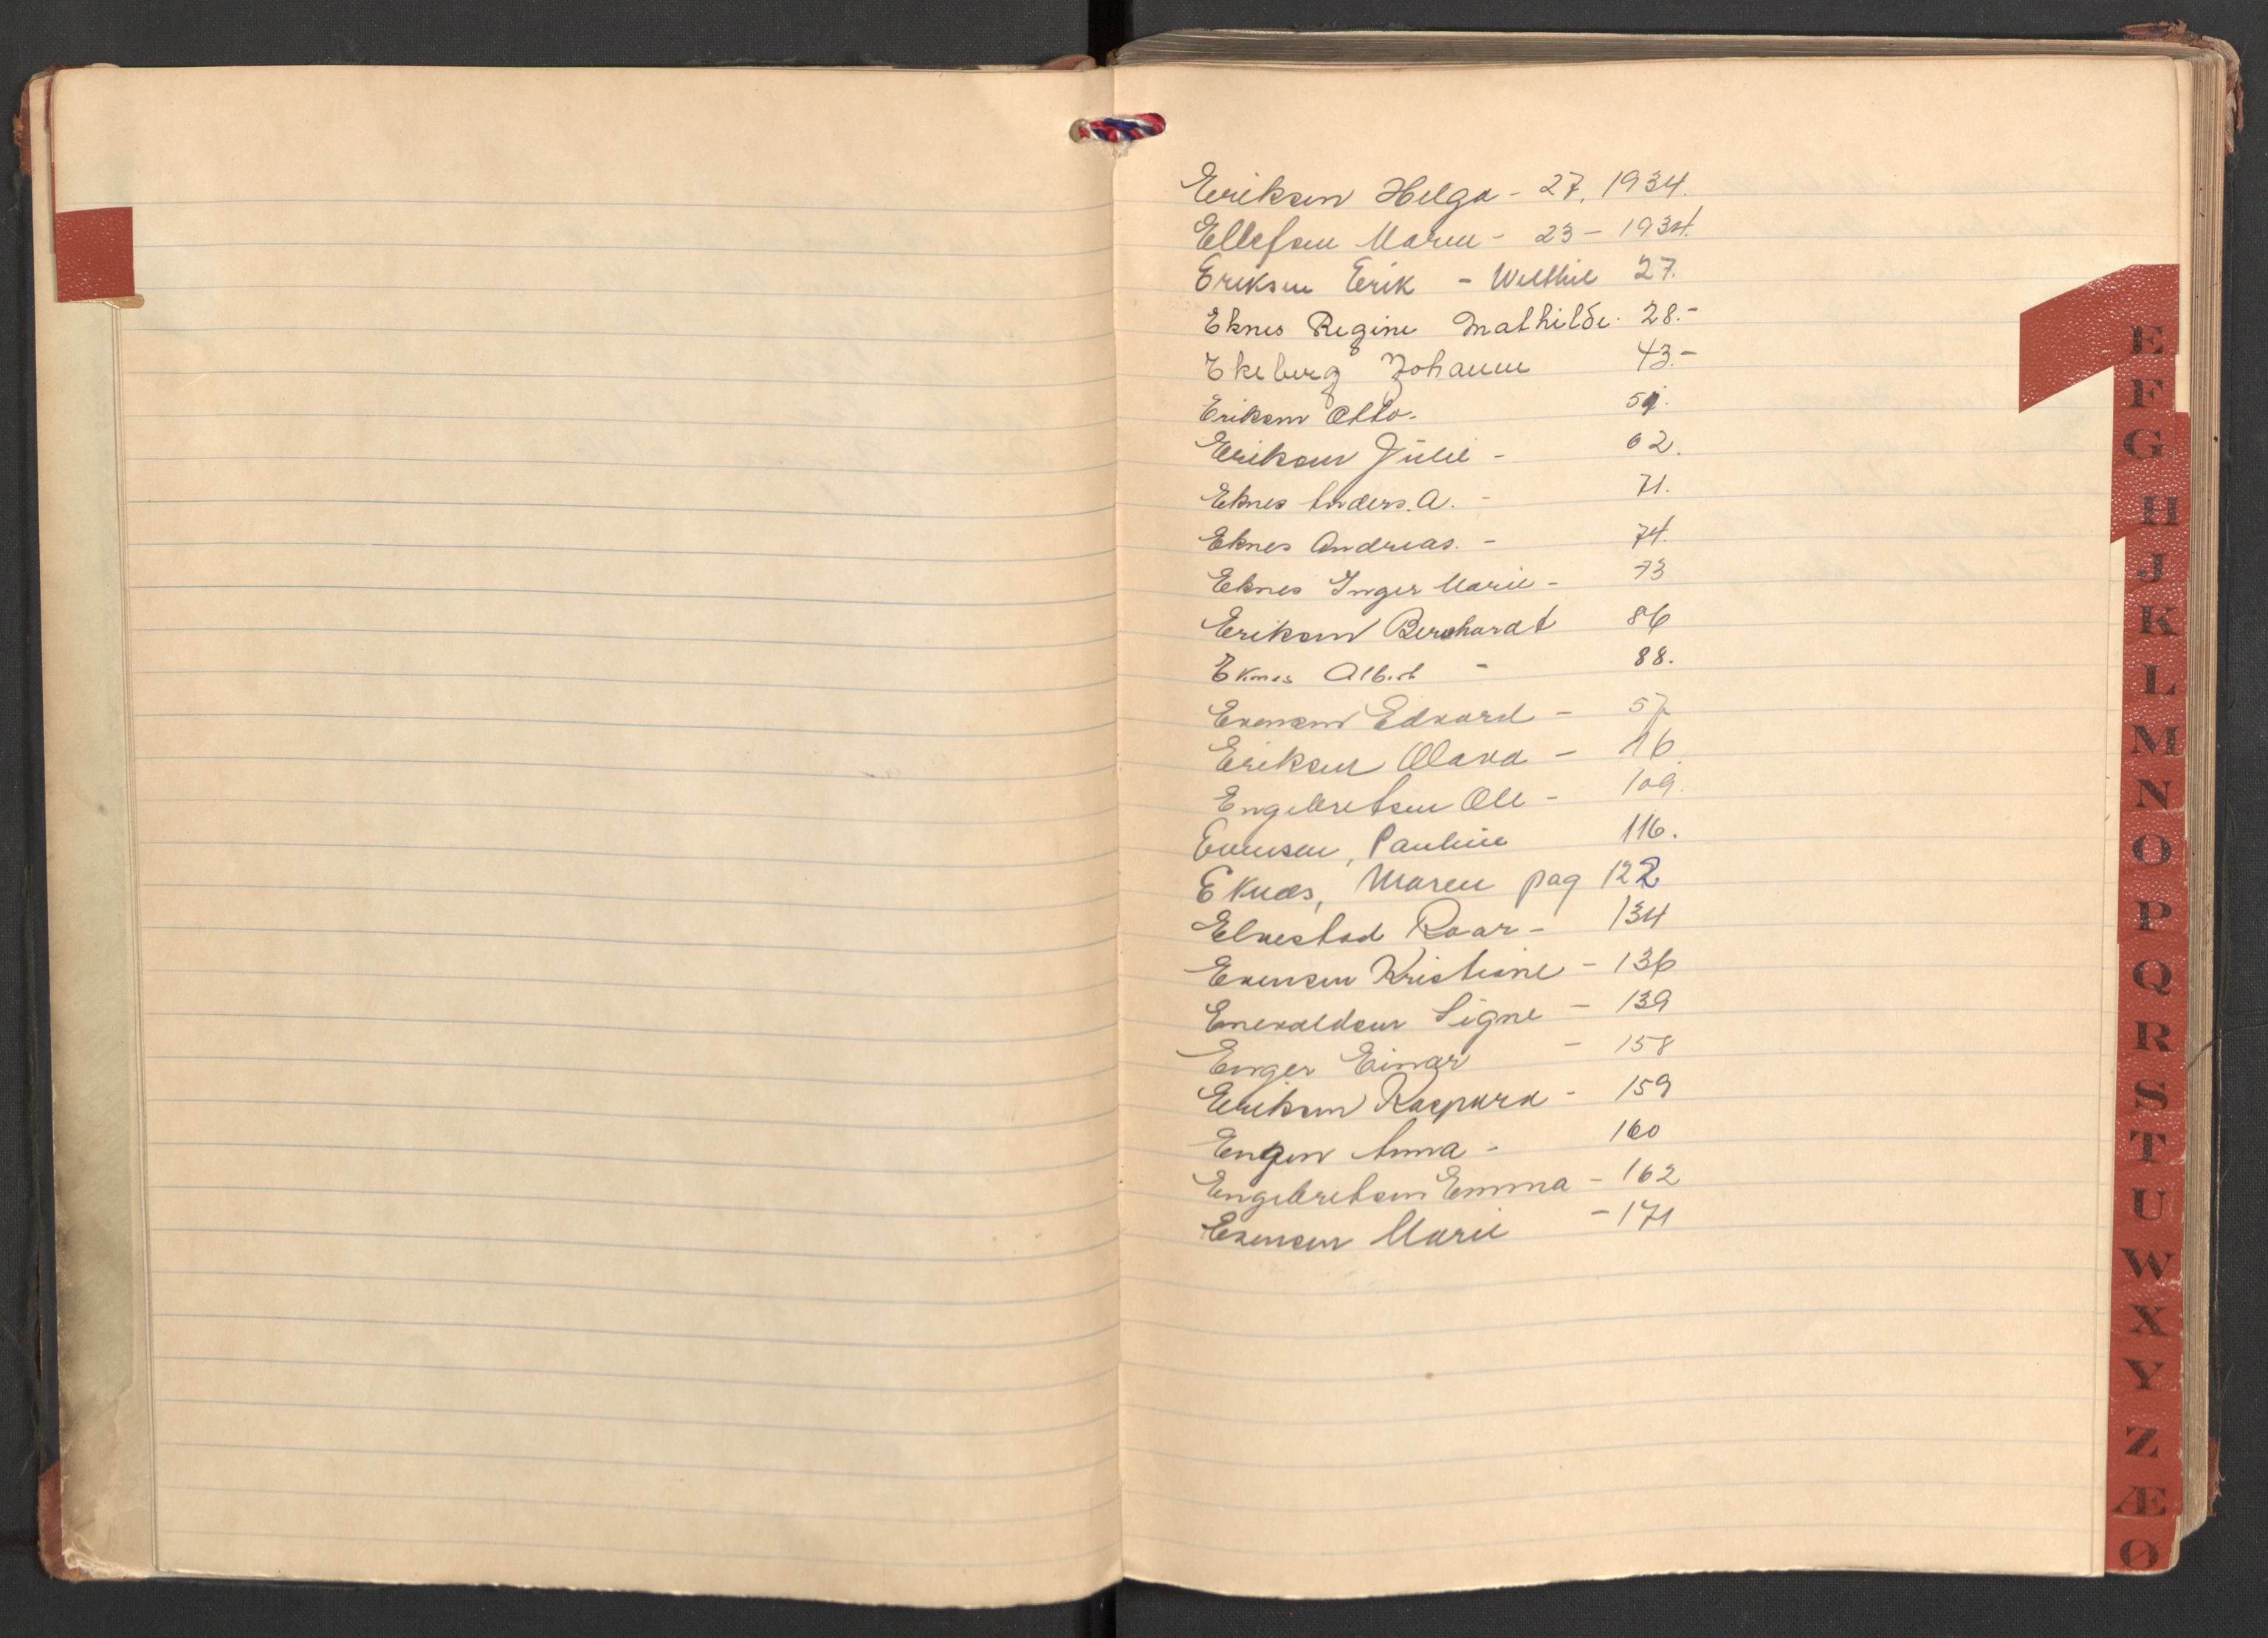 Eriksen Helga - 27, 1934.
Ellefsen Maren - 23 - 1934.
Eriksen Erik - 27.
Eknes Regine Mathilde. 28.-
Ekeberg Johanne 43.-
Eriksen Otto.
Eriksen Julie - 62.
Eknes Anders. A. - 71.
Eknes Andreas. - 74.
Eknes Inger Marie - 73
Eriksen Bernhardt 86
Eknes Albert - 88.
Evensen Edvard - 57
Eriksen Olava - 16.
Engebretsen Ole - 109.
Evensen, Pauline 116.
Eknes, Maren pag 122
Elvestad Roar - 134
Evensen Kristiane - 136
Enevaldsen Signe - 139
Enger Einar - 158
Eriksen Kaspara - 159
Engen Anna - 160
Engebretsen Emma - 162
Evensen Marie - 171
E
F
G
H
J
K
L
M
N
O
P
Q
R
S
T
U
W
X
Y
Z
Æ
Ø